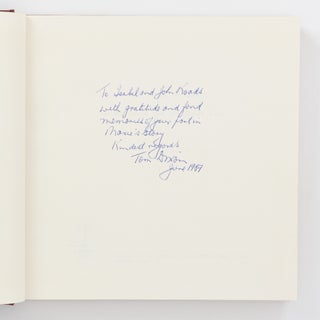 To Isabel and John Roads
with gratitude and fond
memories of your part in
Moxie's Story
Kindest regards
Tom Dixon
June 1987